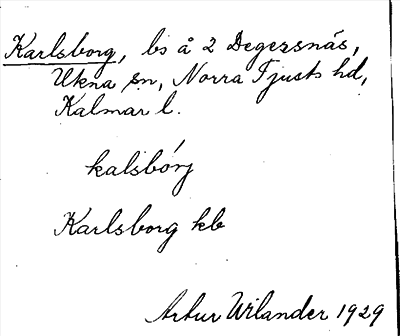 Karlsborg, bs å 2 Degersnäs,
Ukna sn, Norra Tjusts hd,
Kalmar l.
kalsbórj
Karlsborg kb
Artur Wilander 1929